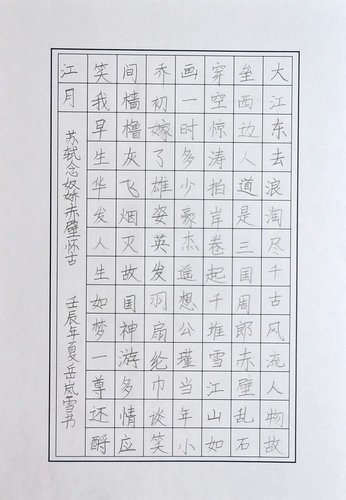 大江东去浪淘尽千古风流人物故
垒西边人道是三国周郎赤壁乱石
穿空惊涛拍岸卷起千堆雪江山如
画一时多少豪杰遥想公瑾当年小
乔初嫁了雄姿英发羽扇纶巾谈笑
间樯橹灰飞烟灭故国神游多情应
笑我早生华发人生如梦一尊还酹
江月
苏轼念奴娇赤壁怀古 壬辰年夏岳岚雪书